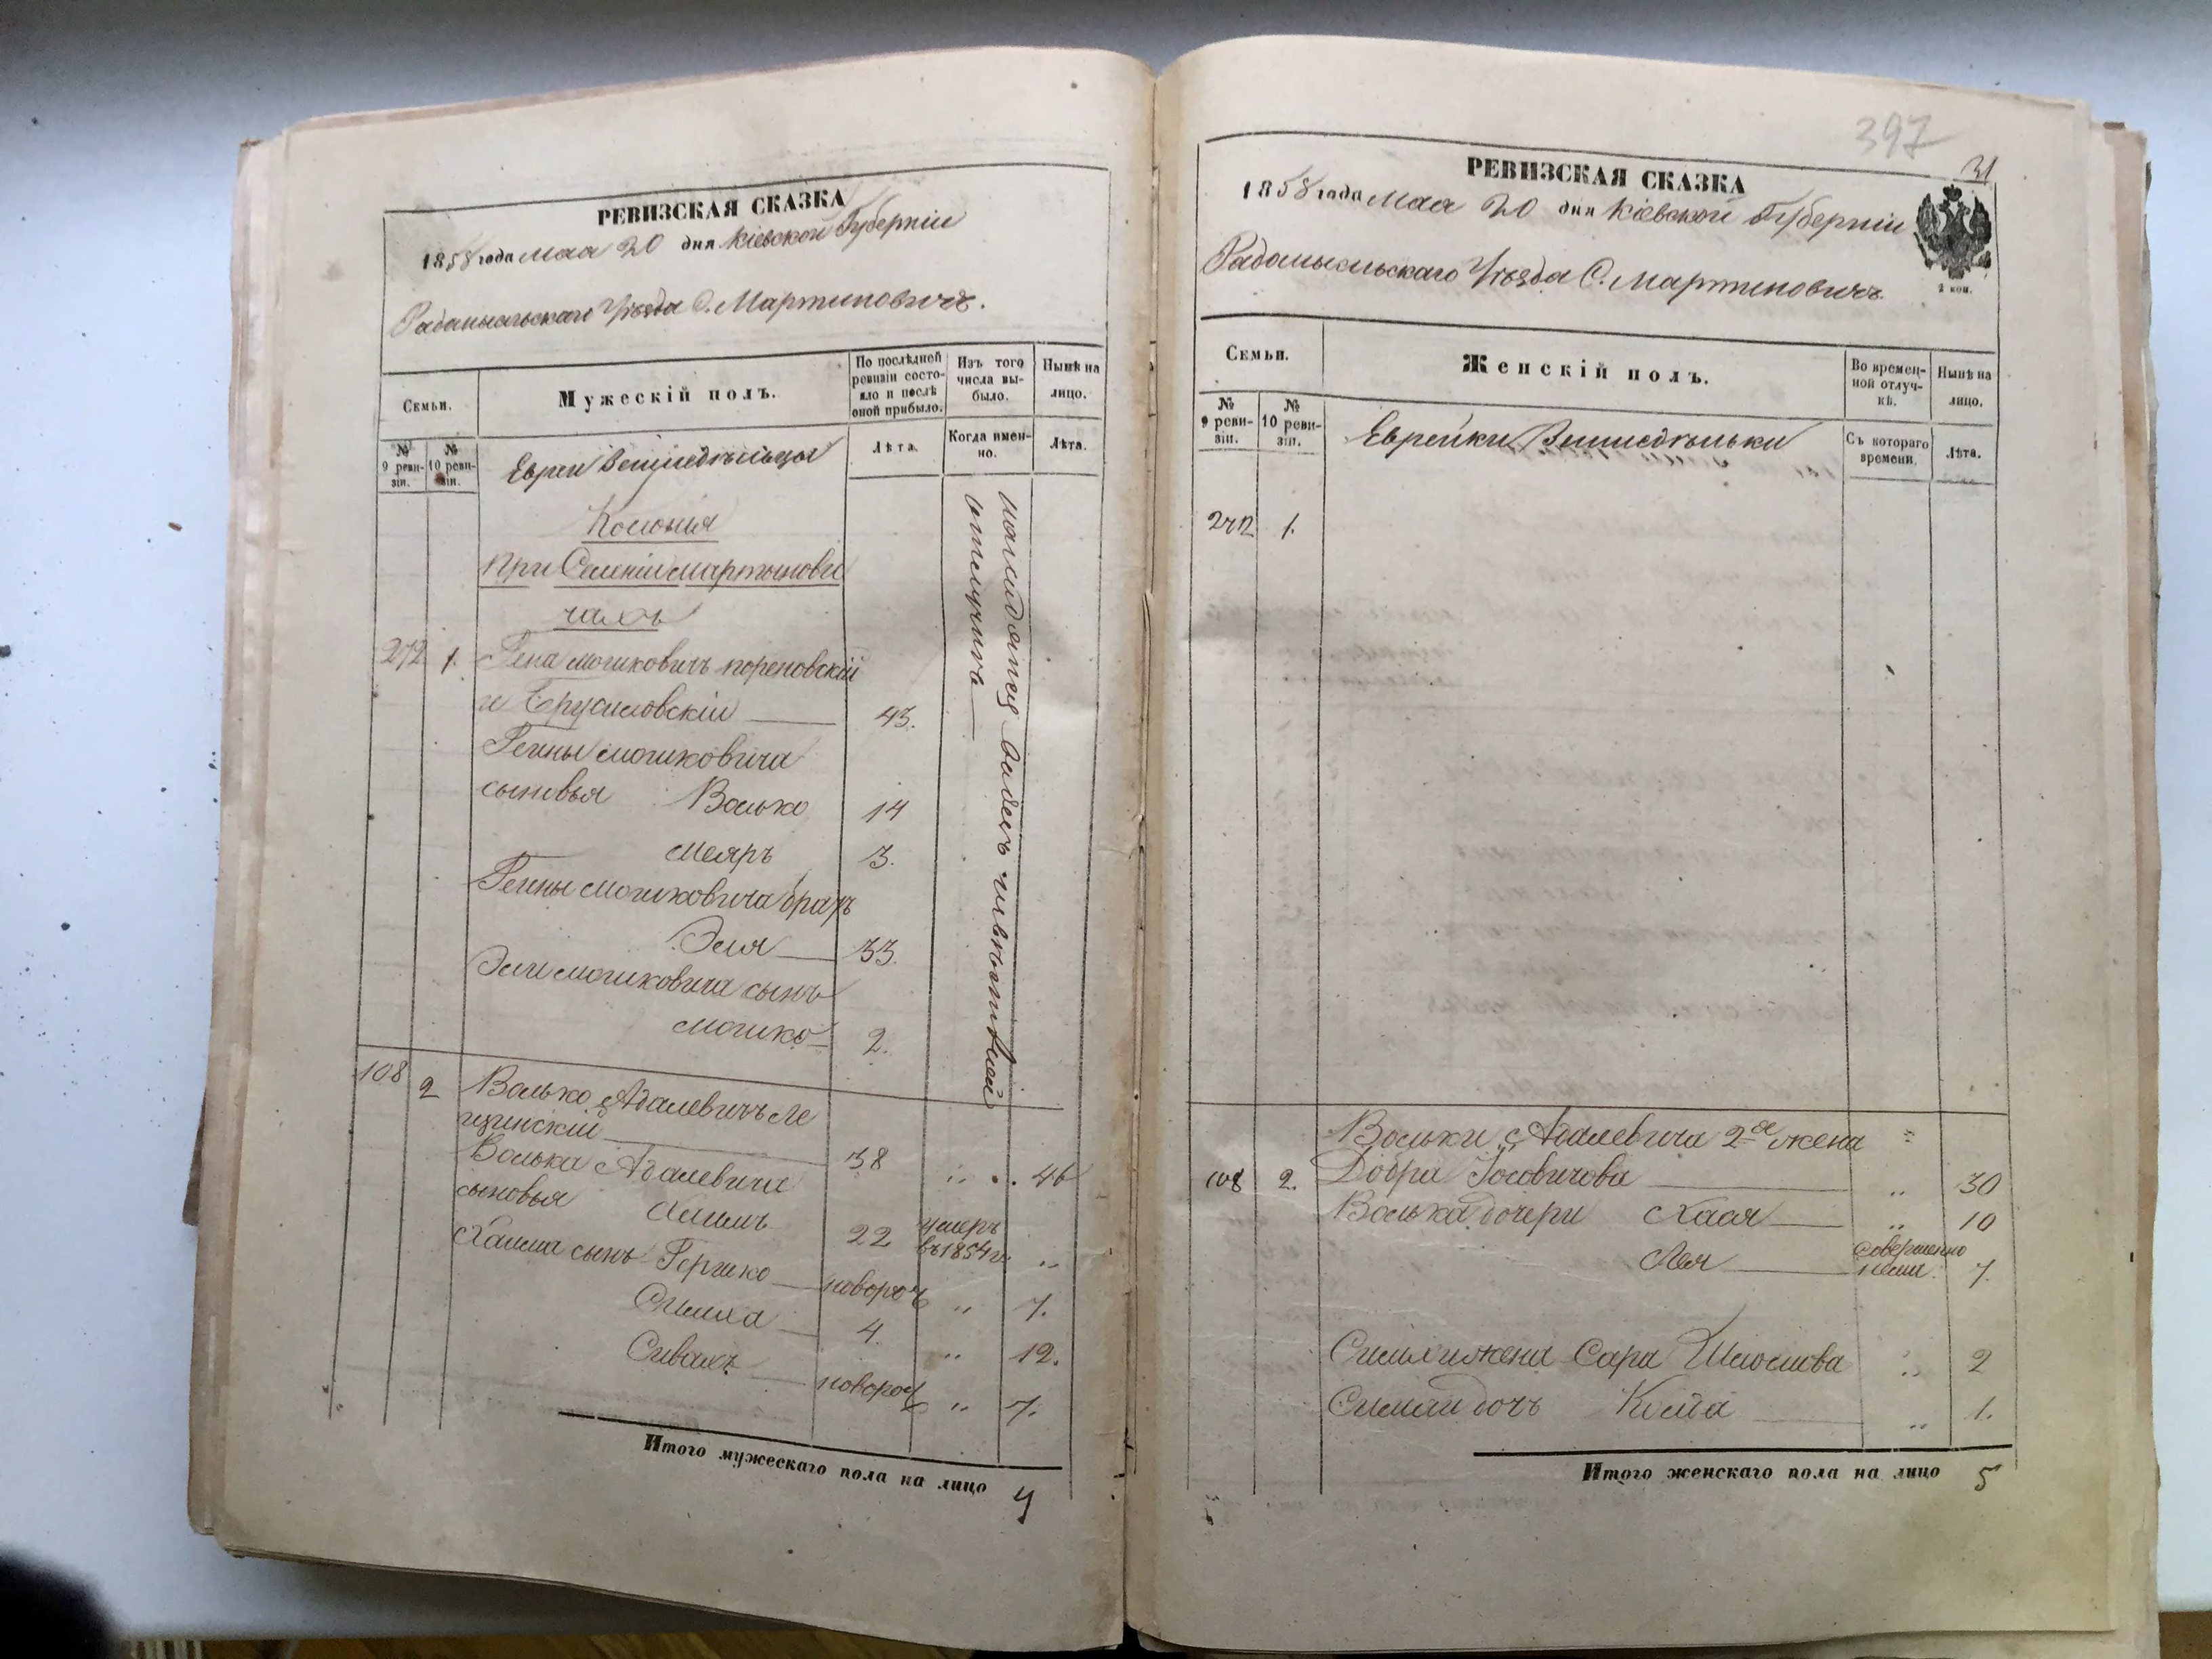 РЕВИЗСКАЯ СКАЗКА
1858 года мая 20 дня Кіевской Губерніи
Радомысльскаго Уѣзда С. Мартиновичъ.
Семьи.
Мужескій полъ.
По послѣдней ревизіи состояло и послѣ оной прибыло.
Изъ того числа выбыло.
Ныньѣ на лицо.
№ 9 ревизіи.
№ 10 ревизіи.
Евреи Земледѣльцы
Лѣта.
Когда именно.
Лѣта.
Колонія
При Селеніи Мартынови
чахъ
272 1. Мошковичъ
и Брусиловскій 43.
Мошковича
сыновья Волько 14
Меяръ 3.
Мошковича братъ
Эля 33.
Эли Мошковича сынъ
Мошко 2.
108 2 Волько Абалевичъ Ле
щинскій 38 „ 46
Волька Абалевича
сыновья Хаимъ 22 умеръ въ 1854 г. „
Хаима сынъ Гершко новорож „ 7.
Симха 4. „ 12.
новорож „ 7.
Итого мужескаго пола на лицо 4
397
31
РЕВИЗСКАЯ СКАЗКА
1858 года Мая 20 дня Кіевской Губерніи
Радомысльскаго Уѣзда С. Мартиновичъ.
2 коп.
Семьи.
Женскій полъ.
Во временной отлучкѣ.
Ныньѣ на лицо.
№ 9 ревизіи.
№ 10 ревизіи.
Еврейки Земледѣльки
Съ котораго времени.
Лѣта.
272 1.
Вольки Абалевича 2я жена „
108 2. Добра Іосовичова „ 30
Волька дочери Хася „ 10
Лея 7.
Симхи жена Сара „ 2
Симхи дочь „ 1.
Итого женскаго пола на лицо 5